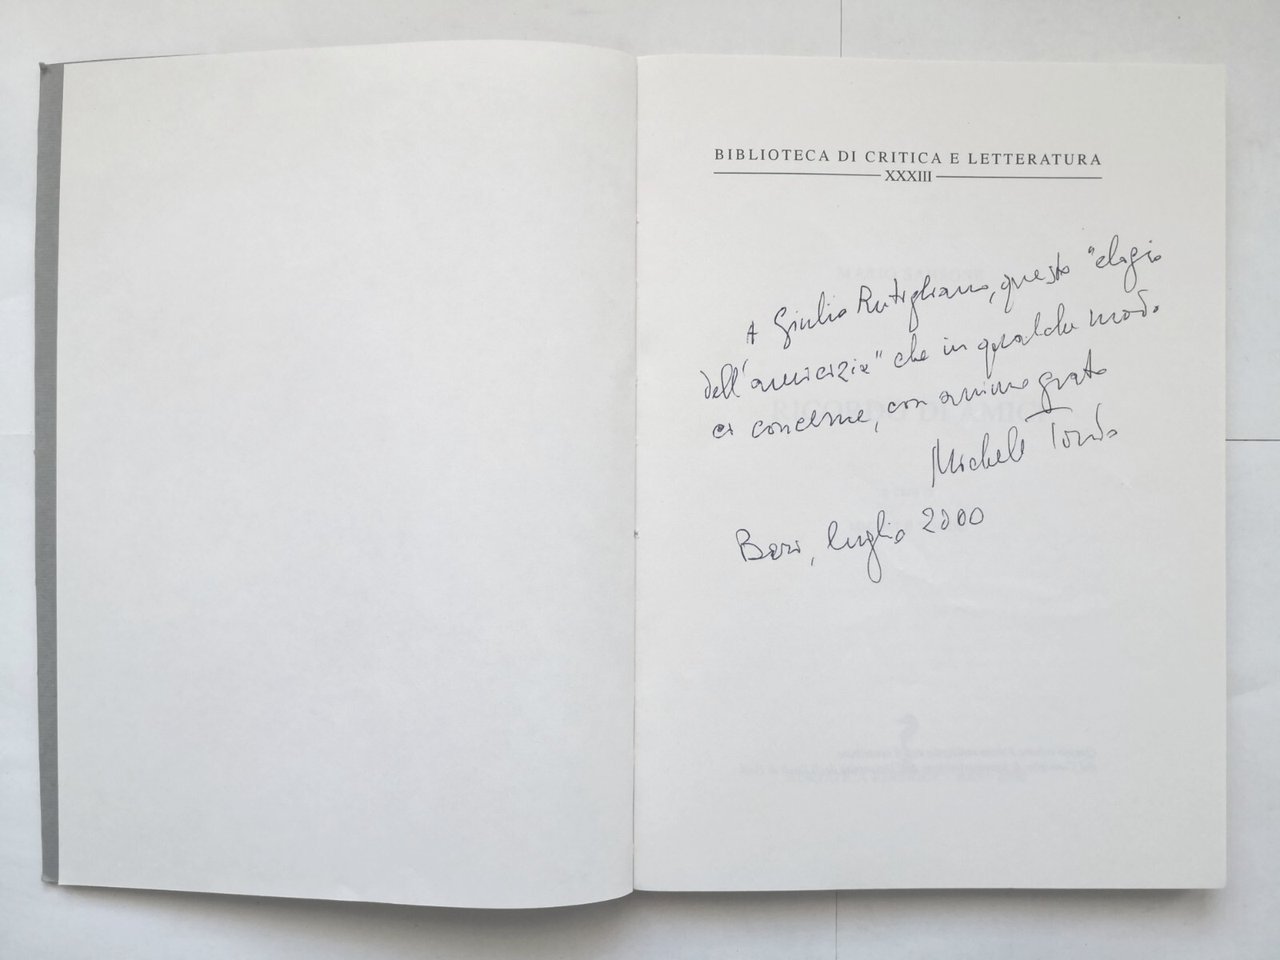 BIBLIOTECA DI CRITICA E LETTERATURA
XXXIII
A Giulio Rutigliano, questo "elogio
dell'amicizia" che in qualche modo
ci concerne, con animo grato
Michele Tondo
Bari, luglio 2000
RICORDO DI AMICI